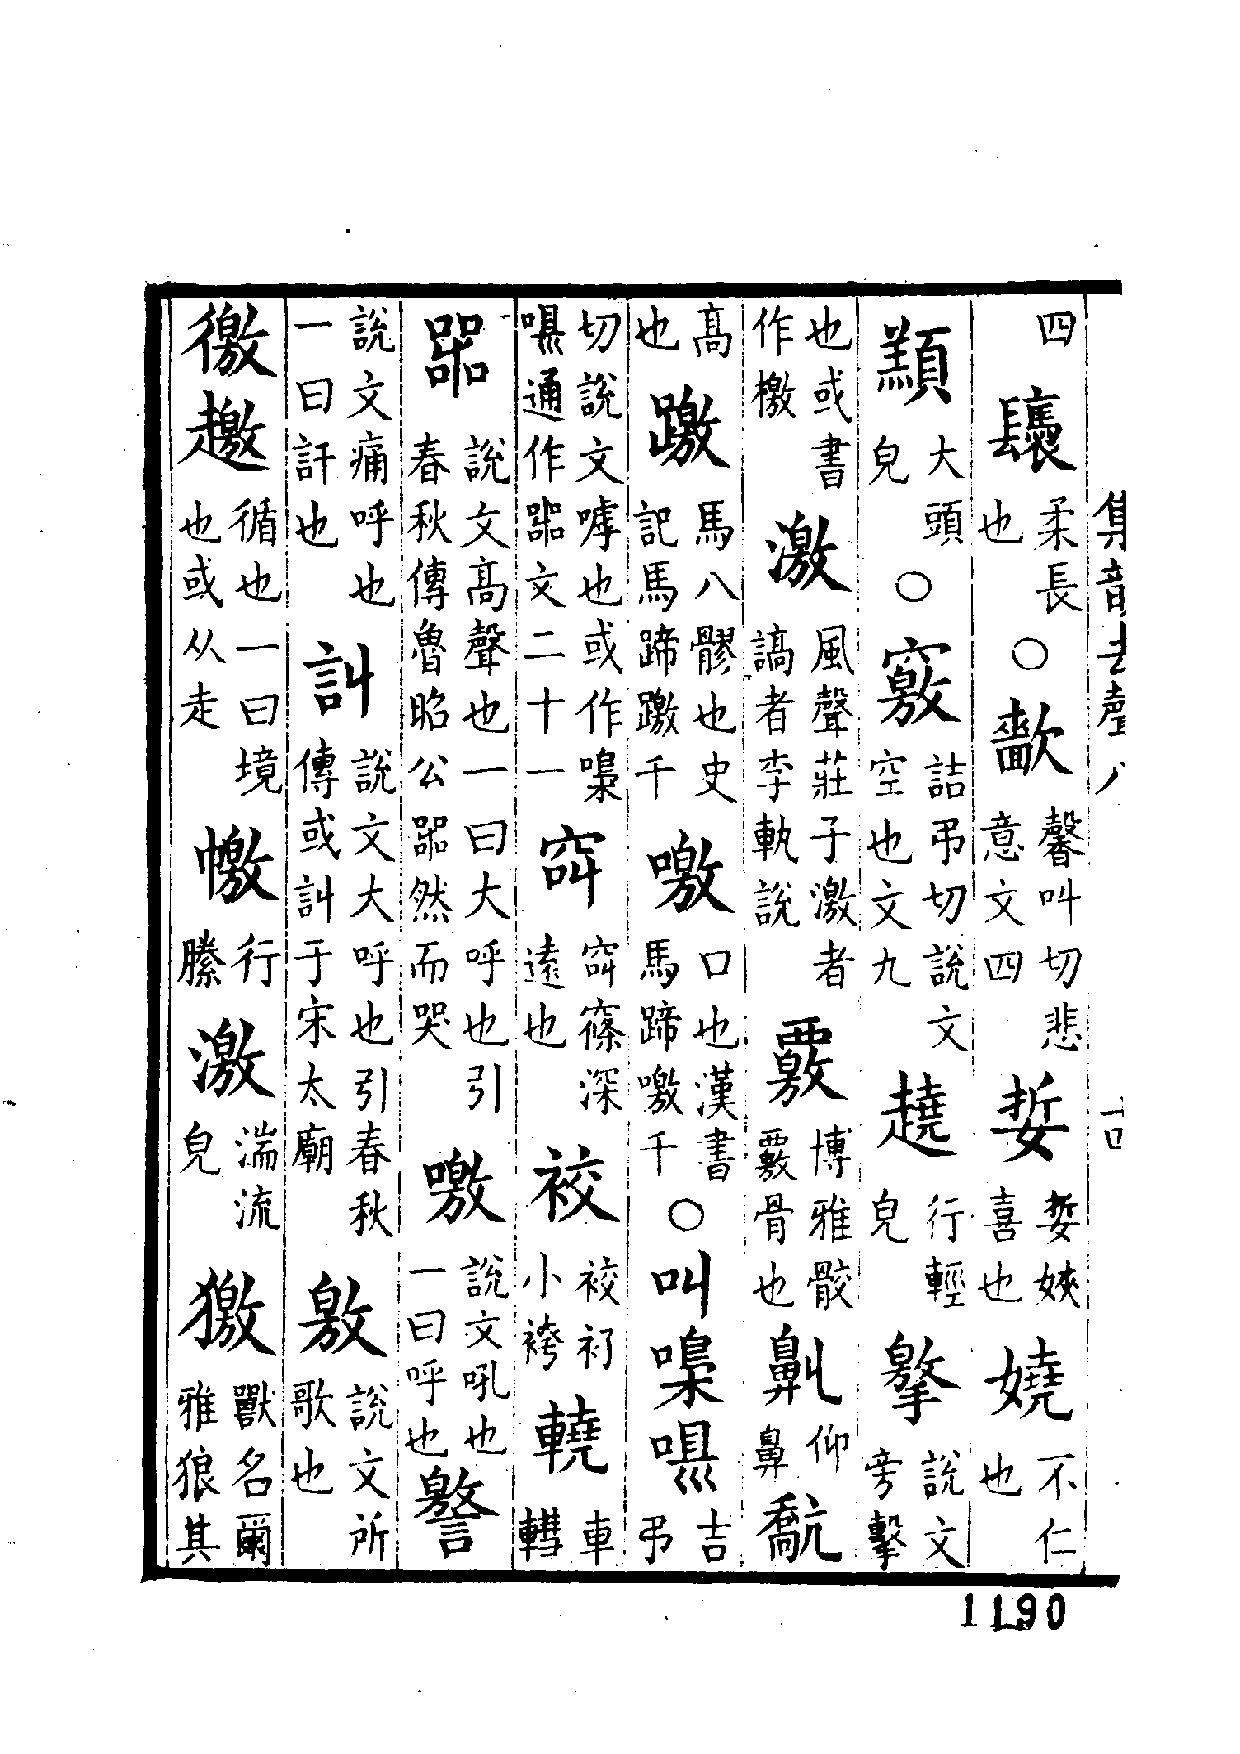 四 柔長也○㱇馨叫切悲意文四娎娎㛍喜也嬈不仁也
大頭皃○竅詰弔切說文空也文九趬行輕皃 說文旁擊
也或書作檄激風聲莊子激者謞者李軌說覈博雅骹覈骨也鼼仰鼻
高也躈馬八髎也史記馬蹄躈千噭口也漢書馬蹄噭千○叫嘄 吉弔
切說文嘑也或作嘄 通作嘂文二十一䆗䆗窱深遠也 小袴 車
嘂說文高聲也一曰大呼也引春秋傳魯昭公嘂然而哭噭說文吼也一曰呼也
說文痛呼也一曰訐也訆說文大呼也引春秋傳或訆于宋太廟敫說文所歌也
徼 循也一曰境也或从走 行縢激湍流皃獥獸名爾雅狼其
集韻去聲八
1190